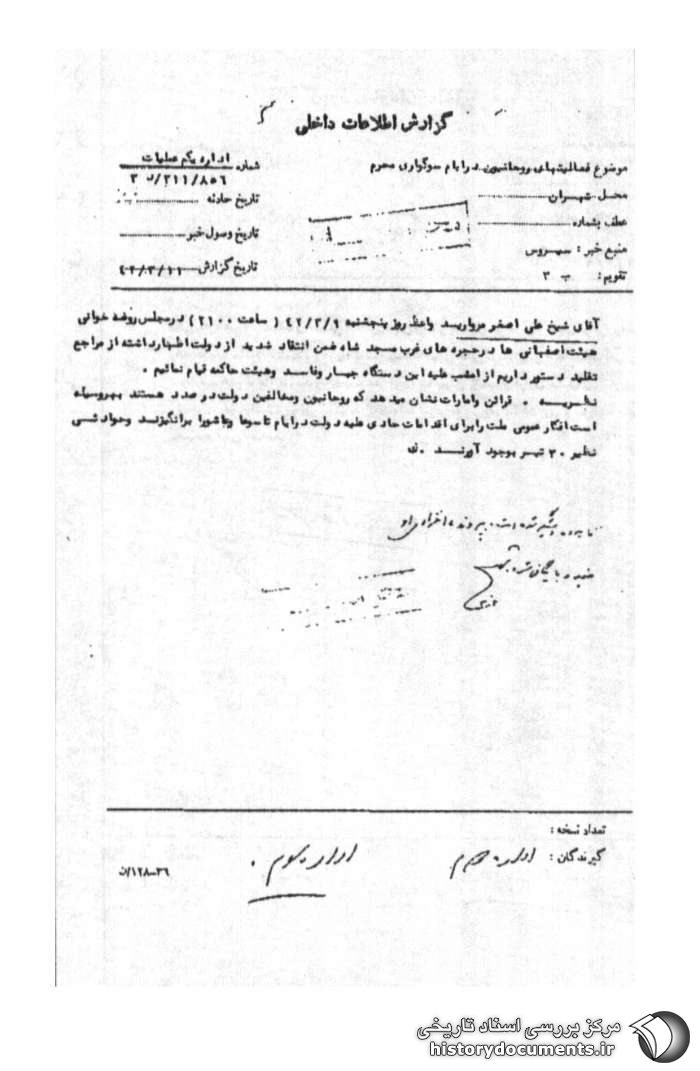 گزارش اطلاعات داخلی
موضوع فعالیتهای روحانیون در ایام سوگواری محرم
شماره اداره یکم عملیات
۳۱۱/۸۵۶/د ۳
محل تهران
تاریخ حادثه
عطف بشماره
تاریخ وصول خبر
منبع خبر : سیروس
تقویم : ب ۳
تاریخ گزارش ۴۲/۳/۱۱
آقای شیخ علی اصغر مروارید واعظ روز پنجشنبه ۴۲/۳/۹ ( ساعت ۲۱۰۰ ) در مجلس روضه خوانی
هیئت اصفهانی ها در حجره های غرب مسجد شاه ضمن انتقاد شدید از دولت اظهار داشته از مراجع
تقلید دستور داریم از امشب علیه این دستگاه جبار و فاسد وهیئت حاکمه قیام نمائیم .
نظریه . قرائن وامارات نشان میدهد که روحانیون ومخالفین دولت در صدد هستند بهروسیله
است افکار عمومی ملت را برای اقدامات حادی علیه دولت در ایام تاسوعا وعاشورا برانگیزند وحوادثی
نظیر ۳۰ تیر بوجود آورند . ن
نامبرده دستگیر شده است . پرونده انفرادی او
تعداد نسخه :
گیرندگان : اداره سوم .
۳۶-۱۲۸/ن
مرکز بررسی اسناد تاریخی
historydocuments.ir